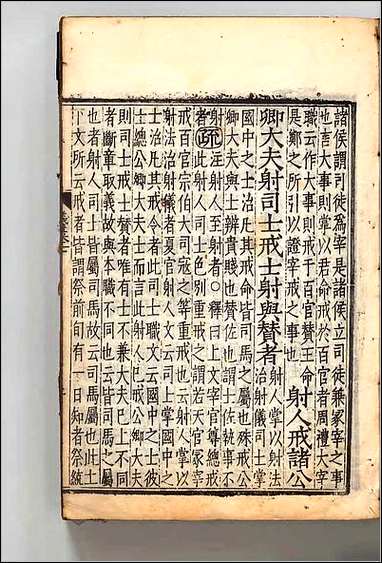 諸侯謂司徒爲宰是諸侯立司徒兼冢宰之事
也言大事則掌以君命戒於百官者周禮大宰
職云作大事則戒于百官賛王命 射人戒諸公
是鄭之所引以證宰戒之事也
卿大夫射司士戒士射與賛者 射人掌以射法治射儀司士掌
國中之士治凡其戒命皆司馬之屬也殊戒公
卿大夫與士辨貴賤也賛佐也謂士佐執事不
射者 疏 注射人至射者○釋曰上文宰官尊總戒
者此射人司士色別重戒之謂若天官冢宰
戒百官宗伯大司寇之等重戒也云射人掌以
射法治射儀者夏官射人文云司士掌國中之
士治凡其戒令者此司士職文云國中之士彼
士總公卿大夫士而言此射人已戒公卿大夫
則司士戒士賛者唯有士不兼大夫巳上不同
者斷章取義故與本職不同也云皆司馬之屬
也者射人司士皆屬司馬故云司馬屬也此士
下文所云戒者皆謂祭前旬有一日知者祭統